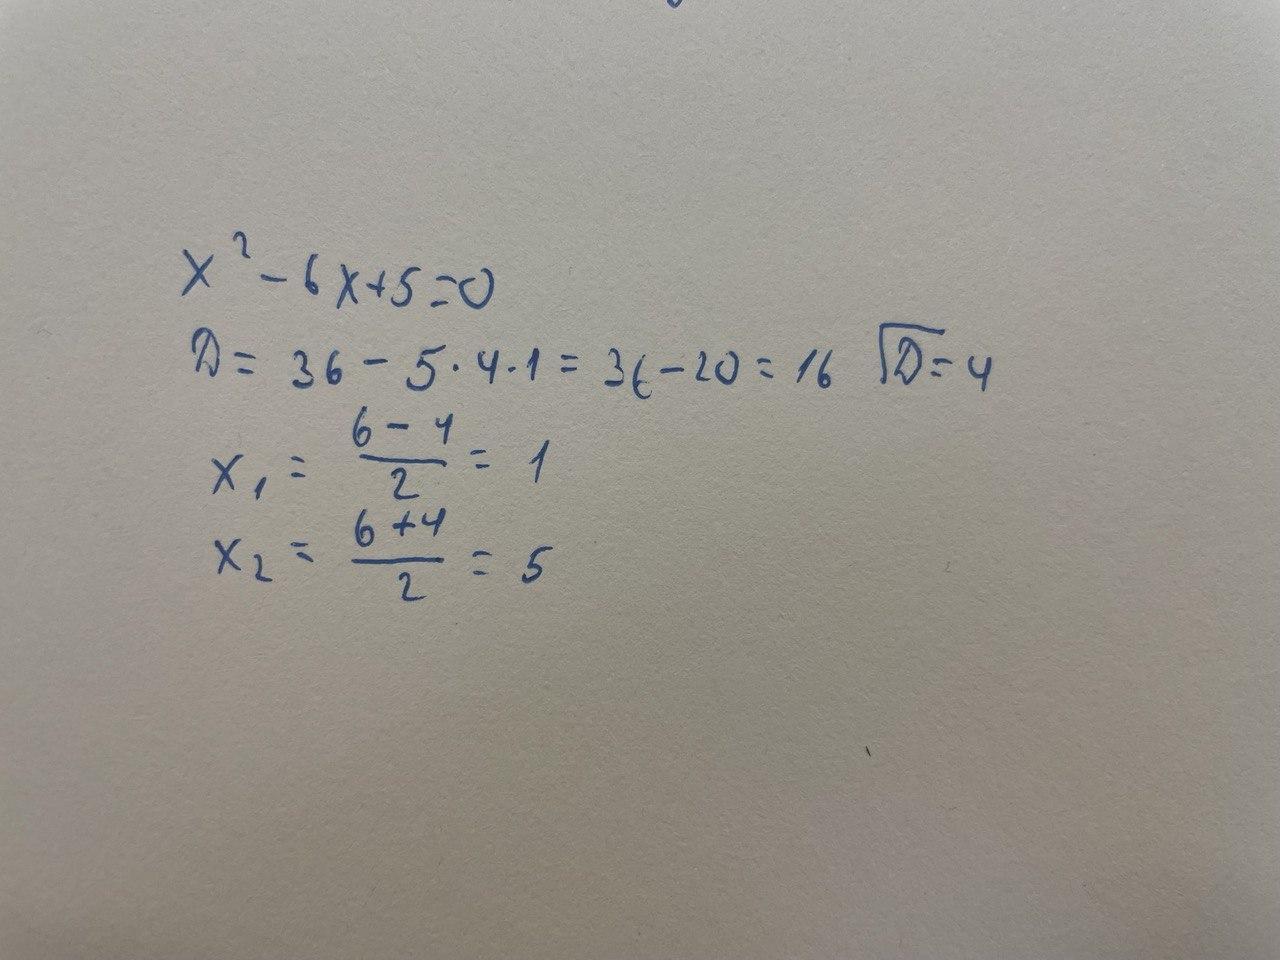 x² - 6x+5=0
D = 36 - 5·4·1 = 36-20 = 16 √D = 4
x₁ = (6 - 4)/2 = 1
x₂ = (6 + 4)/2 = 5